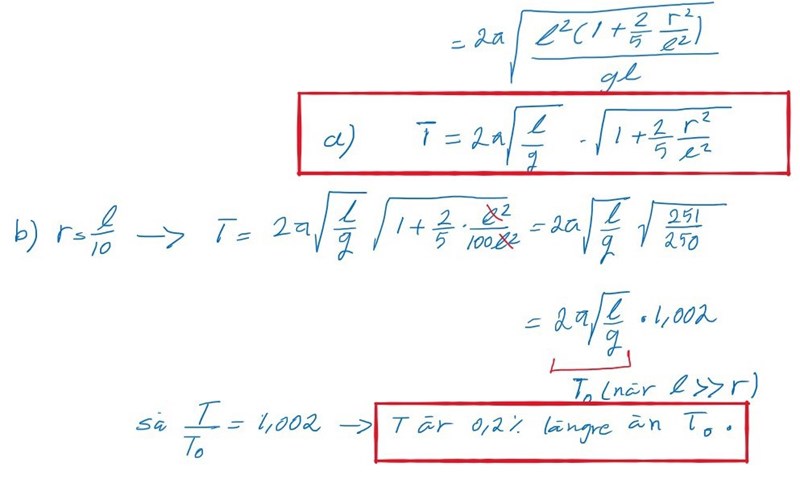 = 2π √(l²(1 + 2/5 r²/l²) / gl)
a) T = 2π √(l/g) · √(1 + 2/5 r²/l²)
b) r = l/10 → T = 2π √(l/g) √(1 + 2/5 · l²/100l²) = 2π √(l/g) √(251/250)
= 2π √(l/g) · 1,002
T₀ (när l >> r)
så T/T₀ = 1,002 → T är 0,2% längre än T₀.